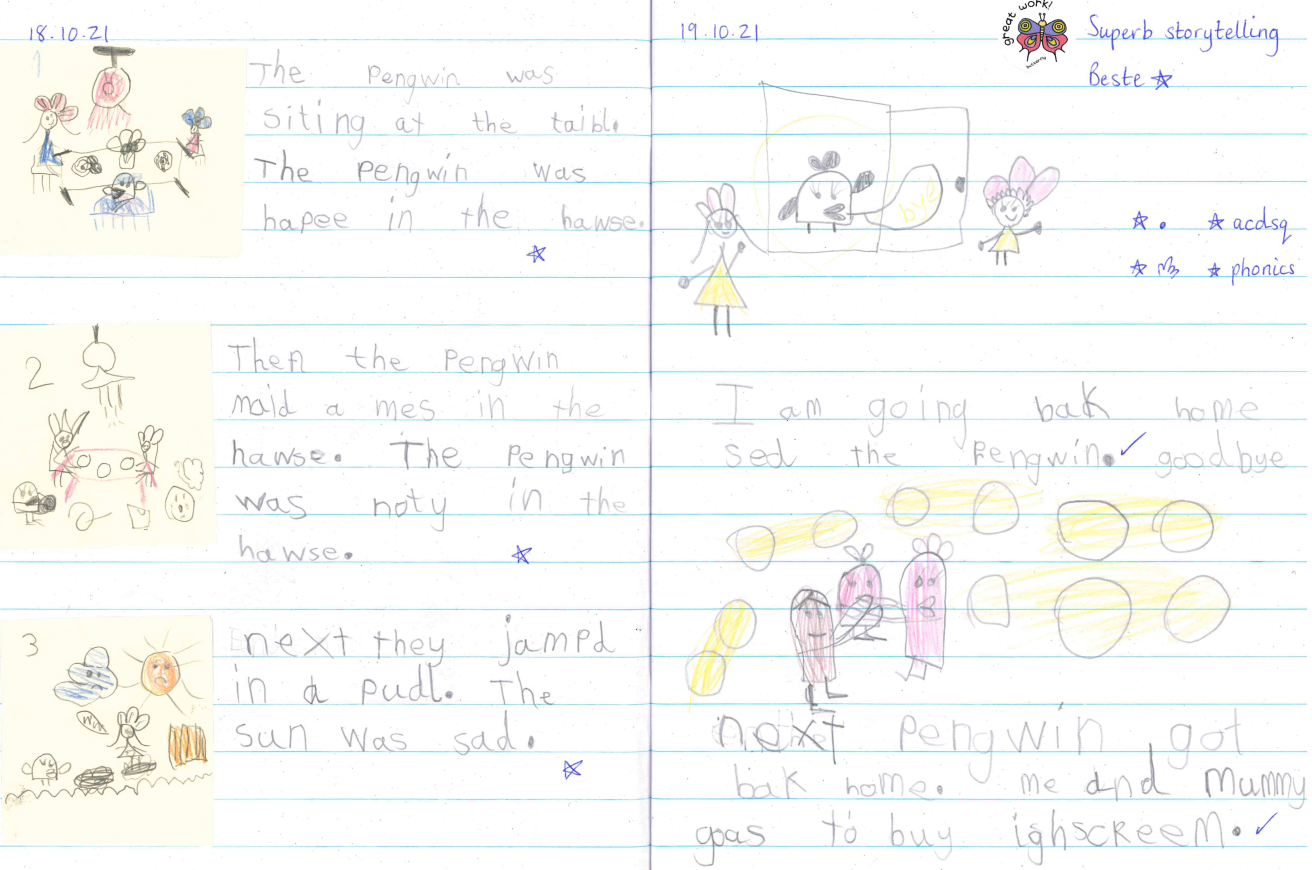 18.10.21
1
The pengwin was
siting at the taibl.
The pengwin was
hapee in the hawse.
2
Then the pengwin
maid a mes in the
hawse. The pengwin
was noty in the
hawse.
3
next they jampd
in a pudl. The
sun was sad.
19.10.21
great work!
Superb storytelling
Beste
bye
acdsq
phonics
I am going bak home
sed the Pengwin. goodbye
next pengwin got
bak home. me and mummy
goas to buy ighscreem.